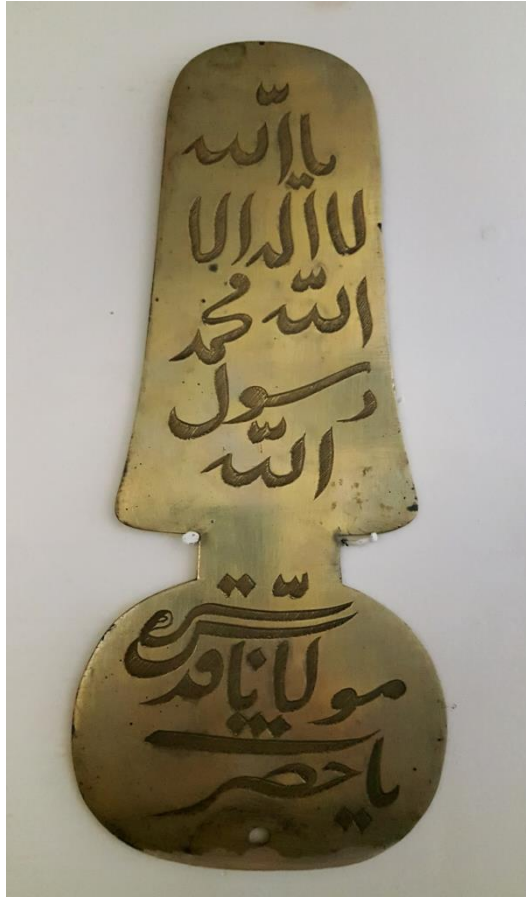 يا الله
لا اله الا
الله محمد
رسول
الله
مولانا قدس سره
يا حضرت